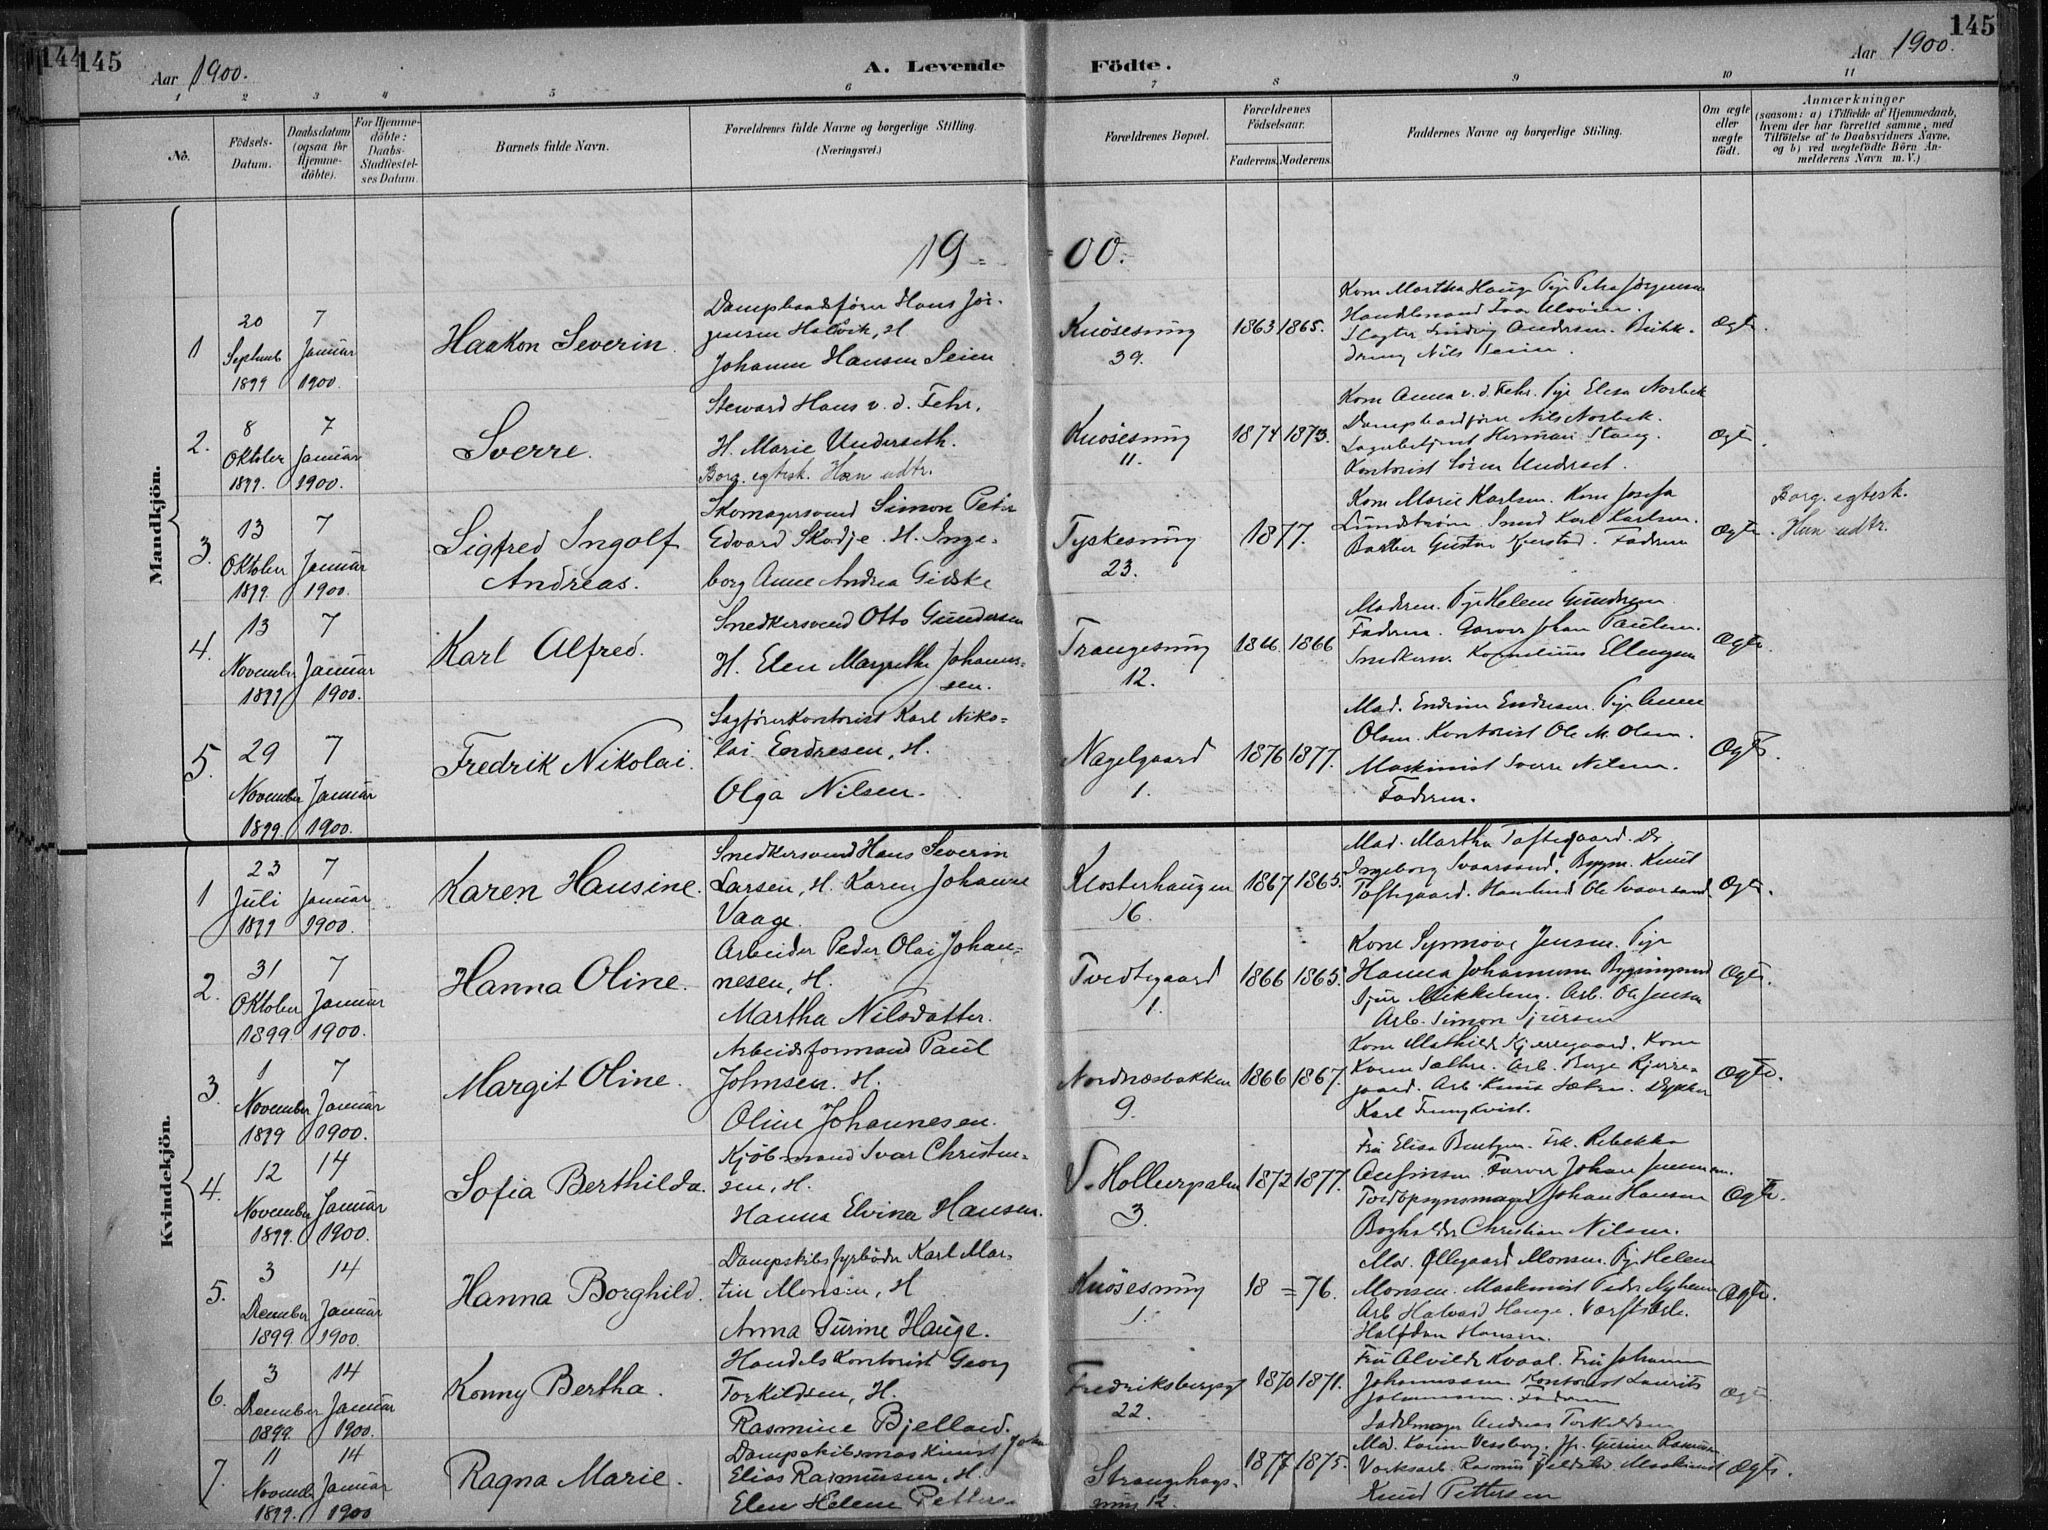 144 145
Aar 1900.
A. Levende Födte.
Aar 1900.
145
1 2 3 4 5 6 7 8 9 10 11
No.
Födsels-
Datum.
Daabsdatum
(ogsaa for
Hjemme-
döbte).
For Hjemme-
döbte:
Daabs-
Stadfæstel-
ses Datum.
Barnets fulde Navn.
Forældrenes fulde Navne og borgerlige Stilling.
(Næringsvei.)
Forældrenes Bopæl.
Forældrenes
Födselsaar.
Faderens. Moderens.
Faddernes Navne og borgerlige Stilling.
Om ægte
eller
uægte
födt.
Anmærkninger
(saasom: a) i Tilfælde af Hjemmedaab,
hvem der har forrettet samme, med
Tilföielse af to Daabsvidners Navne,
og b) ved uægtefödte Börn An-
melderens Navn m. V.)
19 = = 00.
Mandkjön.
1
20
Septemb
1899
7
Januar
1900.
Haakon Severin.
Dampbaadfører Hans Jør-
gensen Halvik, H
Johanne Hansen Seim
Knøsesmug
39.
1863 1865.
Kone Martha Hauge Pige Petra Jörgensen
Handelsmand
Slagter Andersen.
Nils Seim.
Ægte.
2.
8
Oktober
1899.
7
Januar
1900.
Sverre.
Steward Hans v. d. Fehr.
H. Marie Underseth.
Borg. egtesk. Han udtr.
Knøsesmug
11.
1874 1873.
Kone Anna v. d. Fehr. Pige Elisa Norbek
Dampbaadfører Nils Norbek.
Lagerbetjent Herman Stang.
Kontorist Sören Underset.
Ægte.
3.
13
Oktober
1899.
7
Januar
1900.
Sigfred Ingolf
Andreas.
Skomagersvend Simon Peter
Edvard Skodje. H. Inge-
borg Anne Andrea Gidske
Tyskesmug
23.
1877.
Kone Marie Karlsen. Kone Josefa
Lundstrøm. Smed Karl Karlsen.
Barber Gustav Kjerstad. Faderen
Ægte.
Borg. egtesk.
Han udtr.
4.
13
November
1899
7
Januar
1900.
Karl Alfred.
Snedkersvend Otto Gundersen
H. Elen Margrethe Johannes-
sen.
Trangesmug
12.
1866. 1866
Moderen. Pige Helene Gundersen
Faderen. Garver Johan Paulsen.
Snedkersv. Kornelius Ellingsen
Ægte.
5.
29
November
1899.
7
Januar
1900.
Fredrik Nikolai.
Sagførerkontorist Karl Niko-
lai Endresen, H.
Olga Nilsen.
Nagelgaard
1.
1876 1877.
Mad. Endresen. Pige Anna
Olsen. Kontorist Ole M. Olsen.
Maskinist Sverre Nilsen.
Faderen.
Ægte.
Kvindekjön.
1
23
Juli
1899
7
Januar
1900.
Karen Hansine.
Snedkersvend Hans Severin
Larsen, H. Karen Johanne
Vaage.
Klosterhaugen
16.
1867 1865.
Mad. Martha Toftegaard. Do
Ingeborg Svaarsand. Bygm. Knut
Toftegaard. Ole Svaarsand
Ægte.
2.
31
Oktober
1899.
7
Januar
1900.
Hanna Oline.
Arbeider Peder Olai Johan-
nesen, H.
Martha Nilsdatter.
Tvedtegaard
1.
1866 1865.
Kone Synnøve Jensen. Pige
Hanna Johannesen Bygningssnd
Sjur Mikkelsen. Arb. Ole Jensen
Arb. Simon Sjursen
Ægte.
3.
1
November
1899
7
Januar
1900.
Margit Oline.
Arbeidsformand Paul
Johnsen. H.
Oline Johannesen.
Nordnæsbakken
9.
1866 1867.
Kone Mathilde Kjerregaard. Kone
Karen Sæthre. Arb. Berge Kjerre-
gaard. Arb. Knut Sæther. Dykker
Karl
Ægte.
4.
12
November
1899.
14
Januar
1900.
Sofia Berthilda.
Kjöbmand Ivar Christen-
sen, H.
Hanna Elvina Hansen.
V. Hollendergaten
3.
1872 1877.
Fru Elisa Bentzen. Frk. Rebekka
Farver Johan
Johan Hansen
Bogholder Christian Nilsen.
Ægte.
5.
3
December
1899
14
Januar
1900.
Hanna Borghild.
Dampskibsfyrböder Karl Mar-
tin Monsen, H
Anna Gurine Hauge.
Knøsesmug
1.
18 = 76.
Mad. Øllegaard Monsen. Pige Helene
Monsen. Maskinist Peder Nyheim
Arb Halvard Hauge. Værftsarb.
Halfdan Hansen.
Ægte.
6.
3
December
1899.
14
Januar
1900.
Konny Bertha.
Handelskontorist Georg
Torkildsen, H.
Rasmine Bjelland.
Fredriksbergsgt
22.
1870 1871.
Fru Alvilde Kvaal. Fru Johanne
Johannessen Kontorist Laurits
Johannessen. Faderen
Sadelmager Andreas Torkildsen
Ægte
7.
11
November
1899.
14
Januar
1900
Ragna Marie.
Dampskibsmaskinist John
Elias Rasmussen, H.
Elen Helene Petters
Strangehags-
smug 12.
1877 1875.
Mad. Karine Vessberg. Jfr. Gurine Rasmussen
Værksarb. Rasmus Maskinist
Knud Pettersen
Ægte.